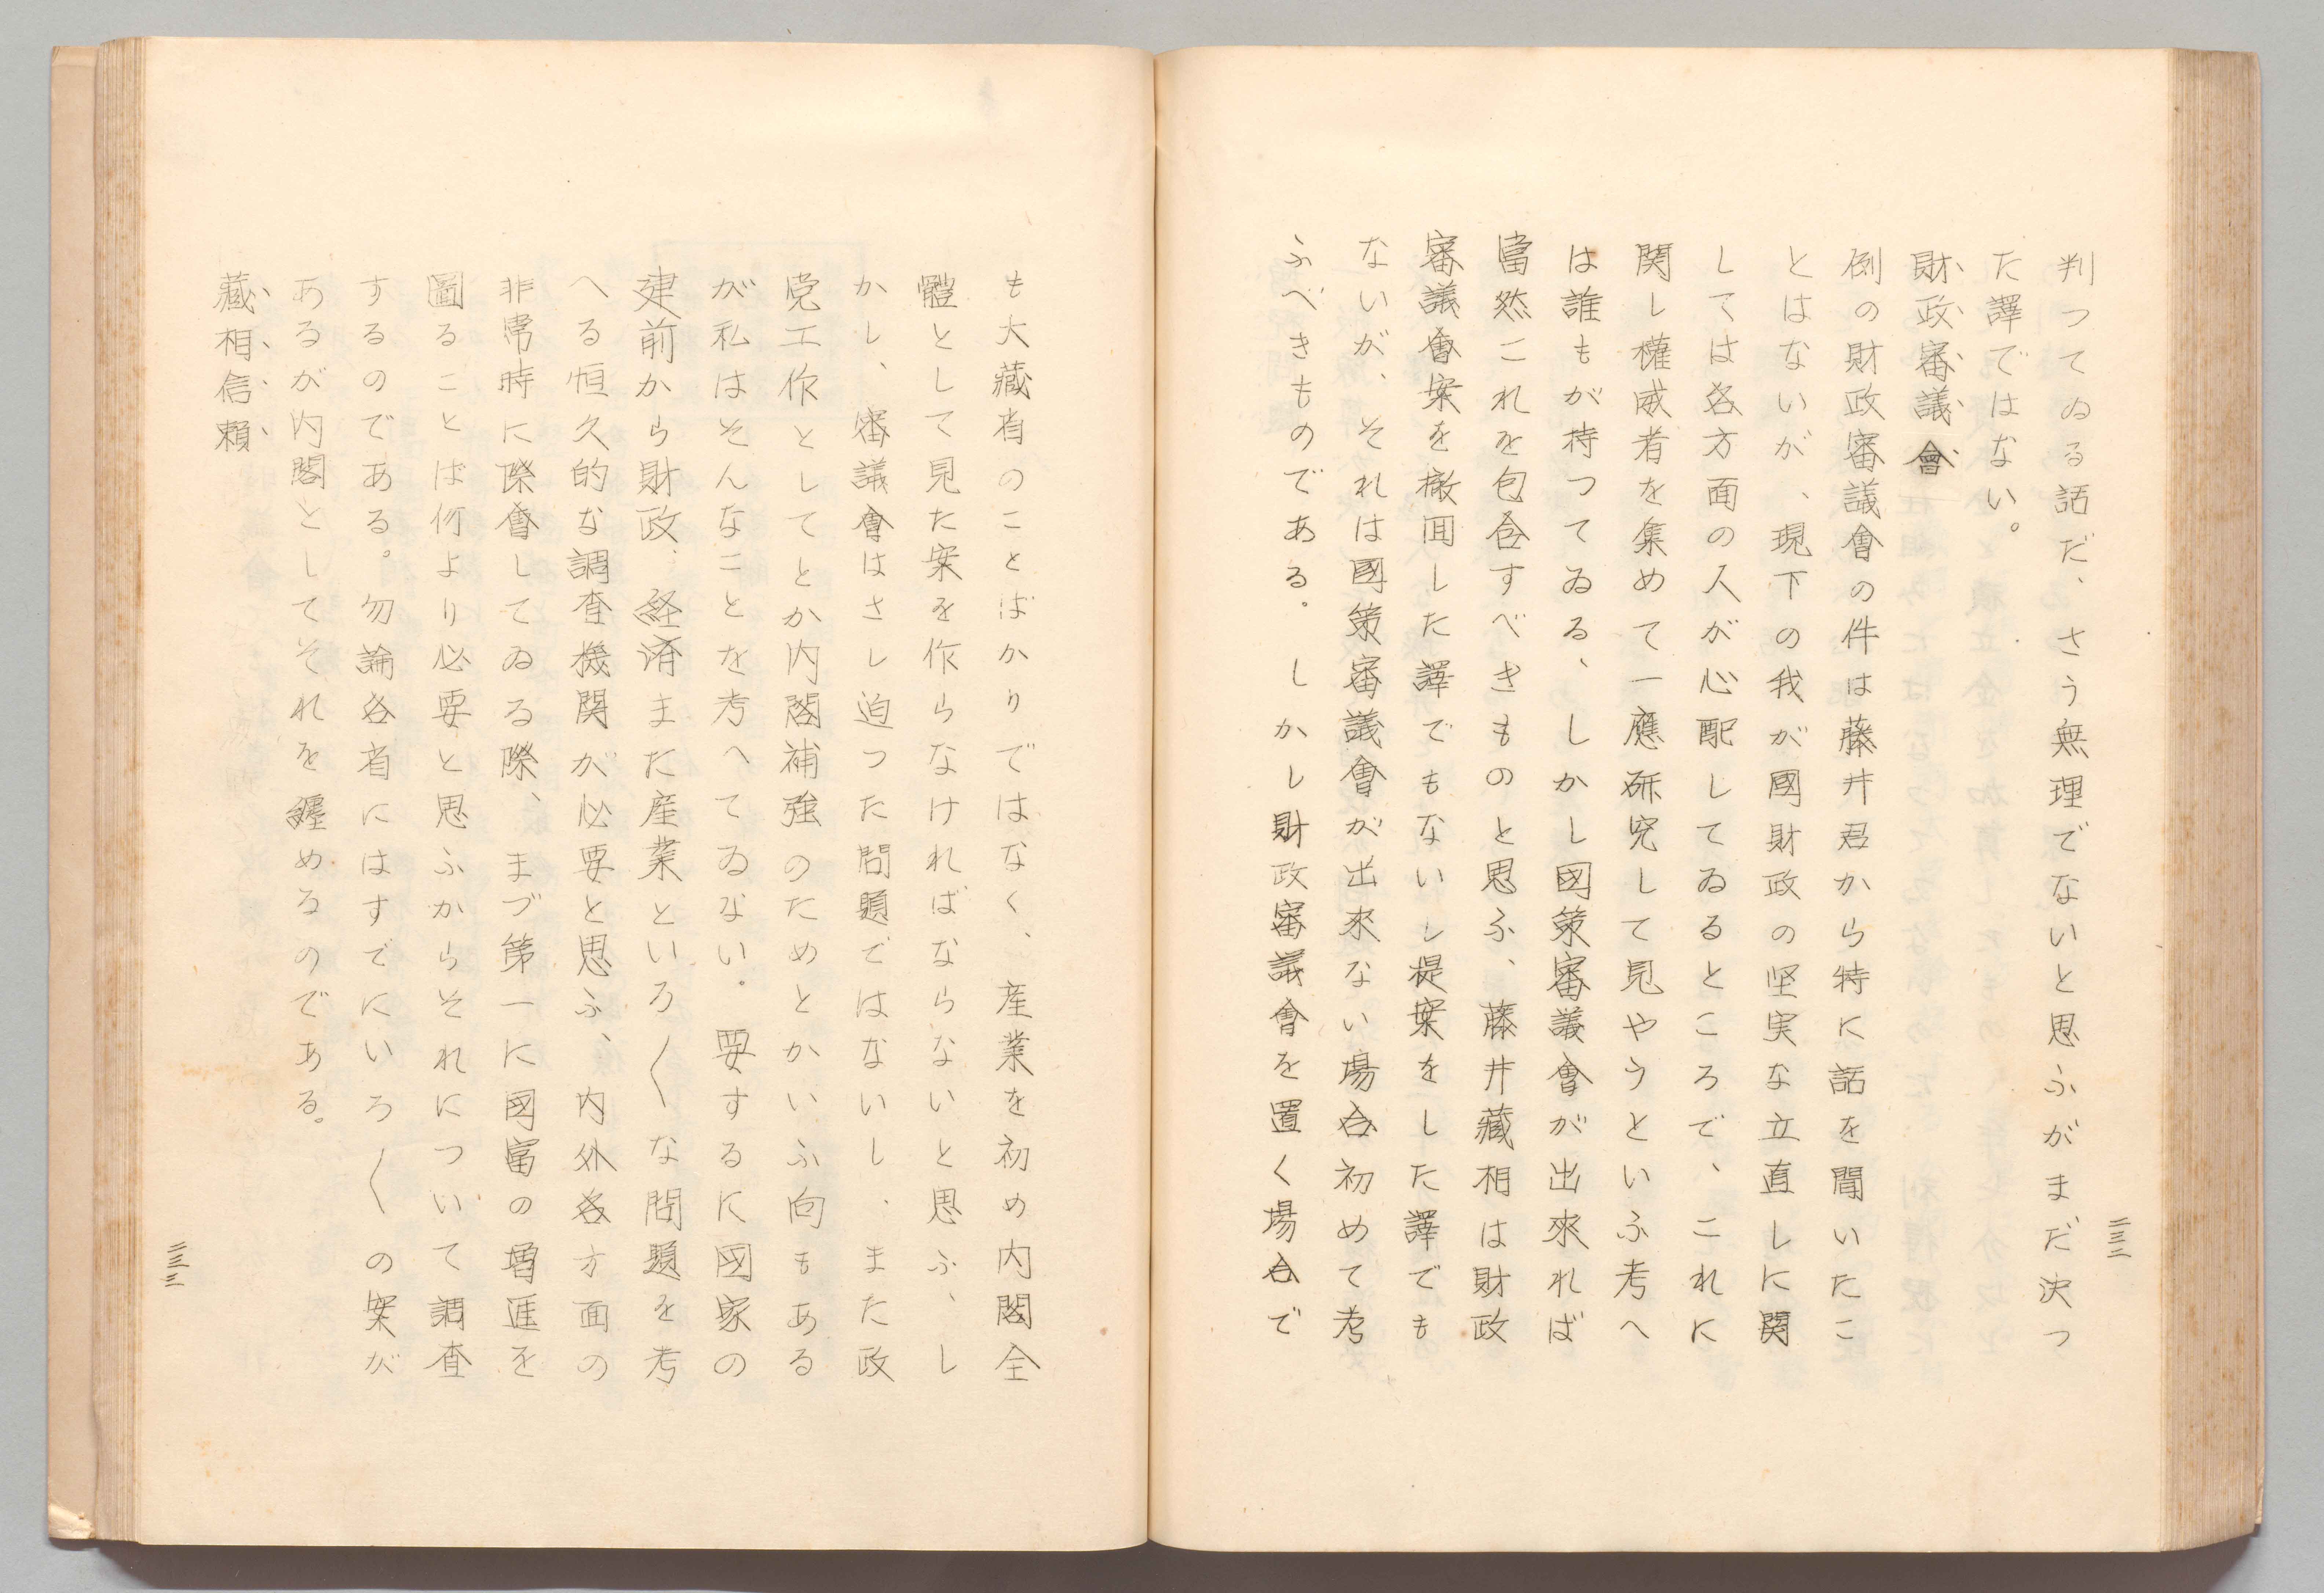 判つてゐる話だ、さう無理でないと思ふがまだ決つ
た譯ではない。
財政審議會
例の財政審議會の件は藤井君から特に話を聞いたこ
とはないが、現下の我が國財政の堅実な立直しに関
しては各方面の人が心配してゐるところで、これに
関し権威者を集めて一應研究して見やうといふ考へ
は誰もが持つてゐる、しかし国策審議會が出來れば
當然これを包含すべきものと思ふ、藤井藏相は財政
審議會案を撤囬した譯でもないし提案をした譯でも
ないが、それは國策審議會が出來ない場合初めて考
ふべきものである。しかし財政審議會を置く場合で
二三二
も大藏省のことばかりではなく、産業を初め内閣全
體として見た案を作らなければならないと思ふ、し
かし、審議會はさし迫つた問題ではないし、また政
党工作としてとか内閣補強のためとかいふ向もある
が私はそんなことを考へてゐない。要するに国家の
建前から財政、経済また産業といろ〱な問題を考
へる恒久的な調査機関が必要と思ふ、内外各方面の
非常時に際會してゐる際、まづ第一に國富の増進を
圖ることは何より必要と思ふからそれについて調査
するのである。勿論各省にはすでにいろ〱の案が
あるが内閣としてそれを纒めるのである。
藏相信頼
二三三